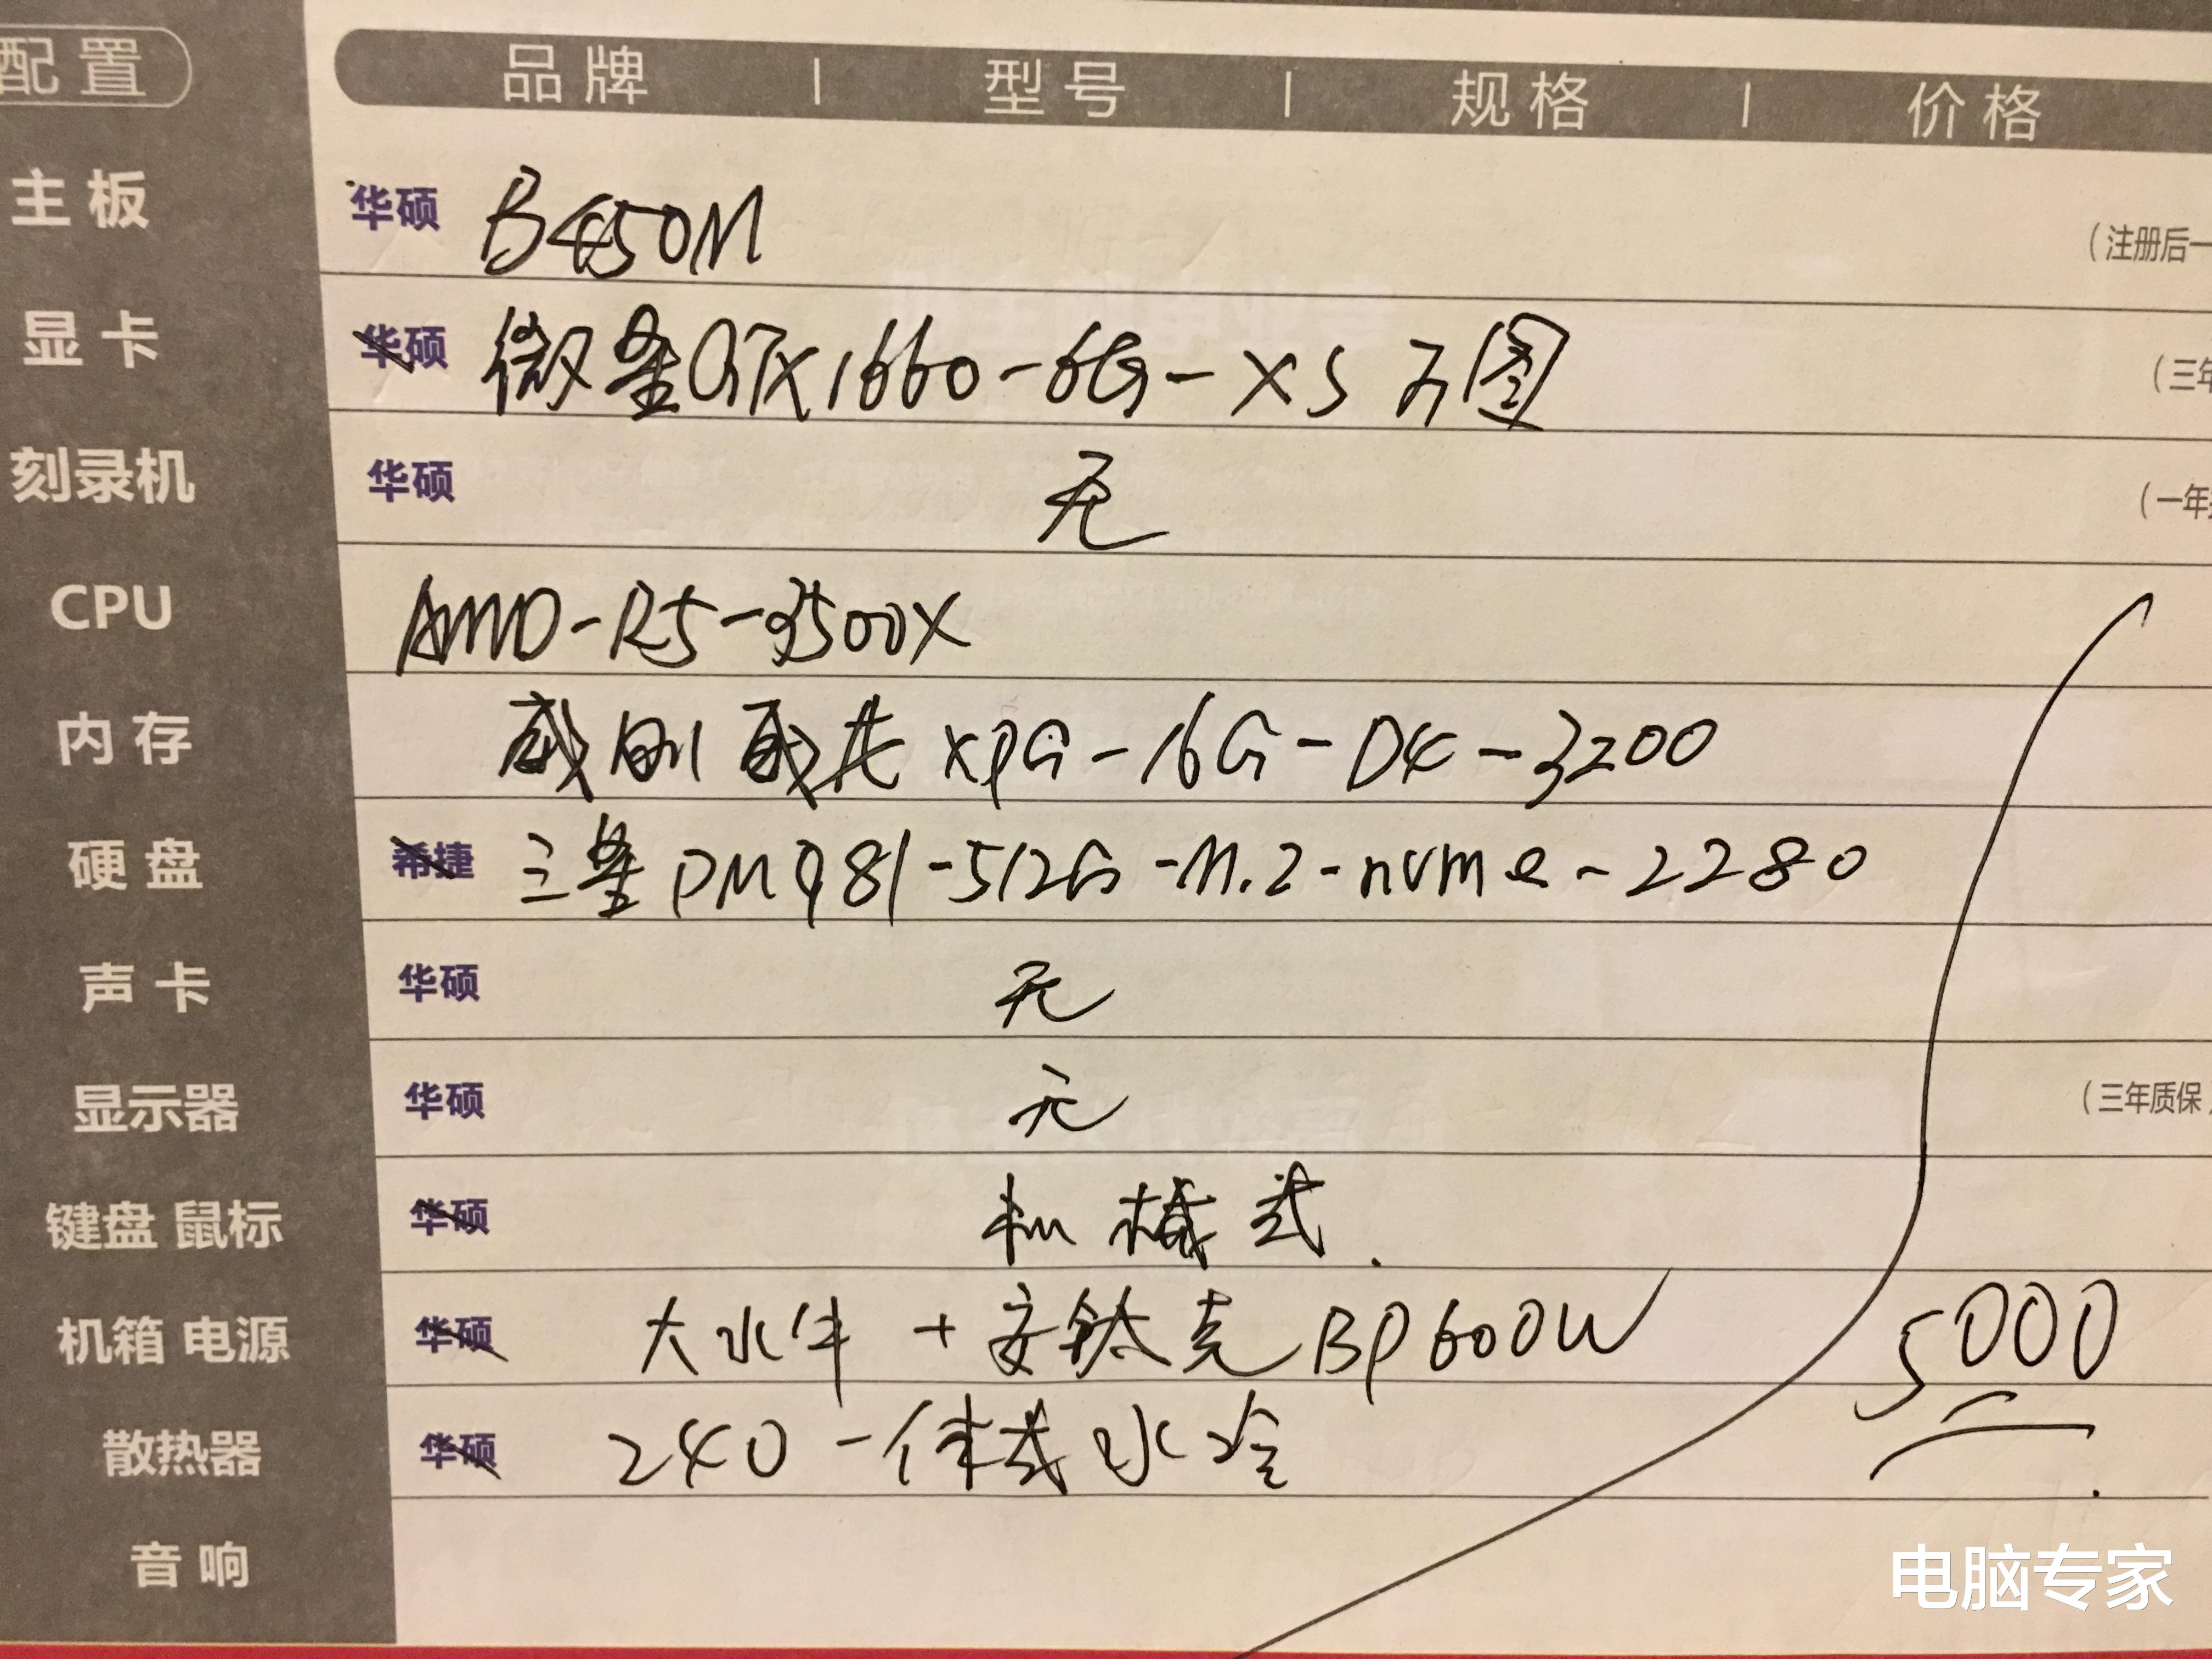 配置 品牌 | 型号 | 规格 | 价格
主板 华硕 B450M (注册后一
显卡 华硕 微星GTX1660-6G-XS 万图 (三年
刻录机 华硕 无 (一年
CPU AMD-R5-3500X
内存 威刚 XPG-16G-D4-3200
硬盘 希捷 三星PM981-512G-M.2-nvme-2280
声卡 华硕 无
显示器 华硕 无 (三年质保
键盘 鼠标 华硕 机械式.
机箱 电源 华硕 大水牛+安钛克BP600W 5000
散热器 华硕 240一体式水冷
音响
电脑专家